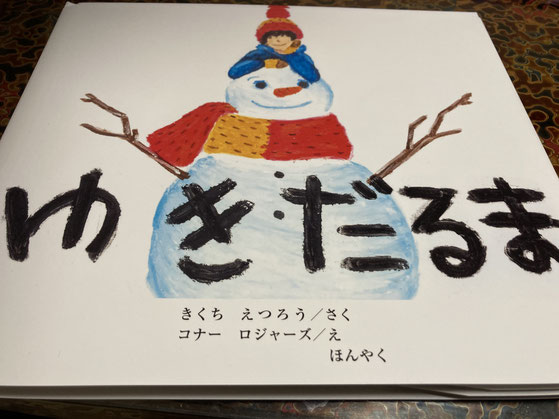 ゆきだるま
きくち　えつろう／さく
コナー　ロジャーズ／え
ほんやく